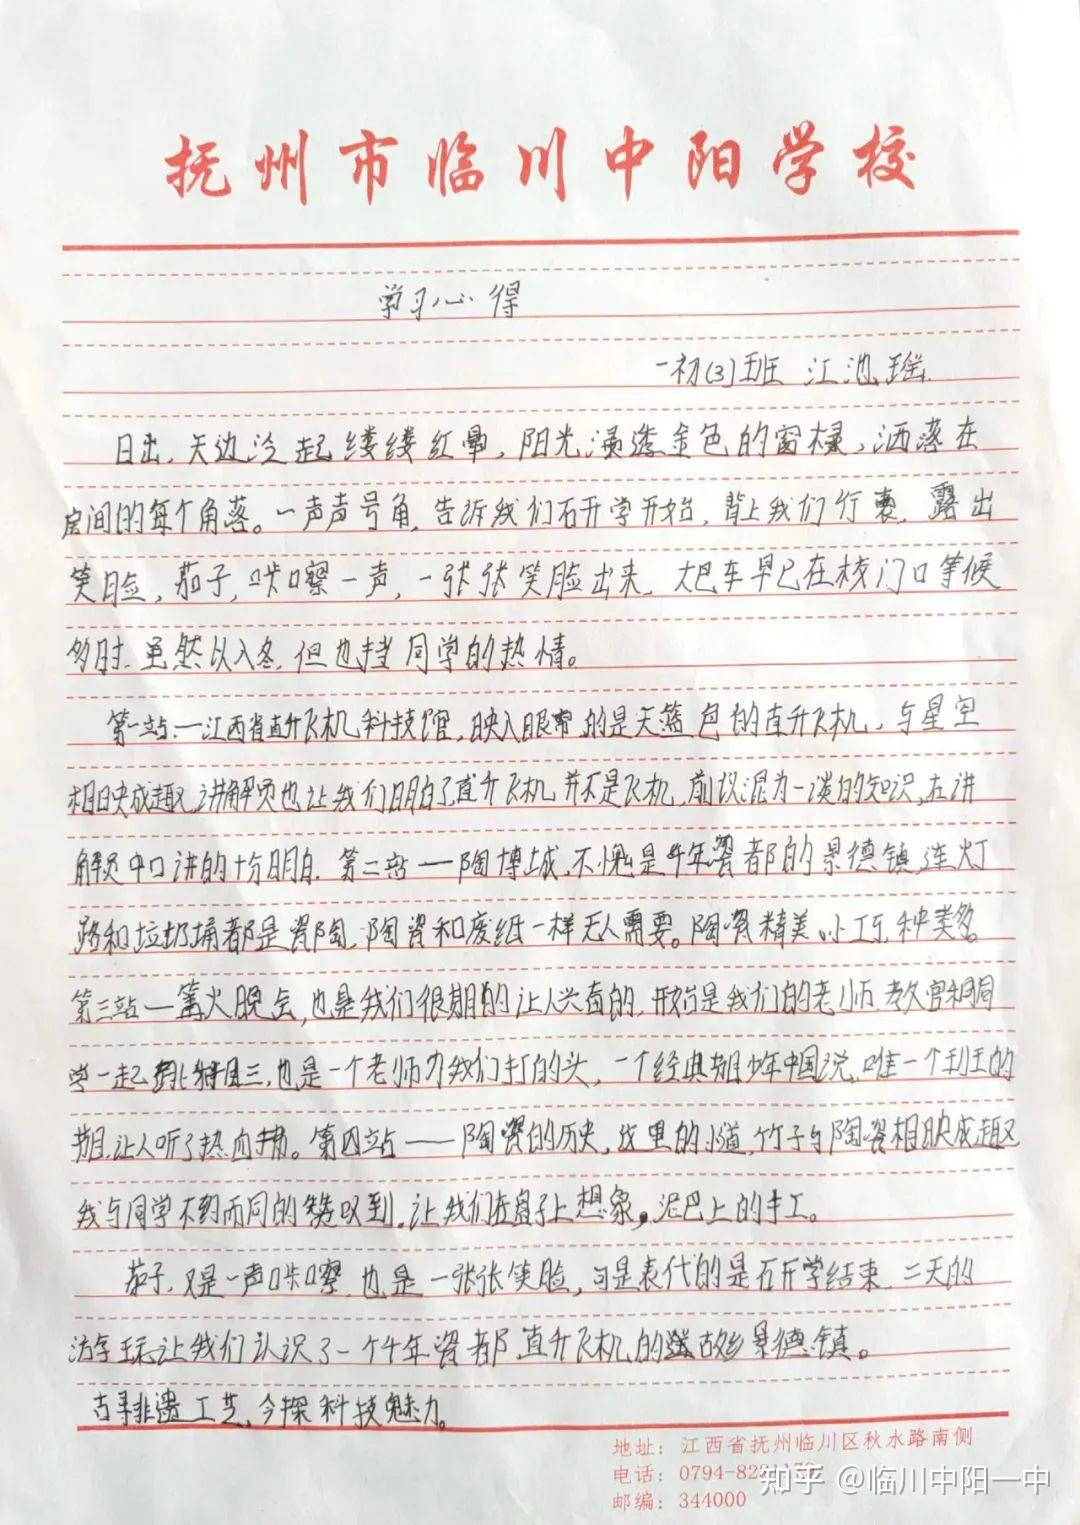 抚州市临川中阳学校
学习心得
一初(3)班 江池瑶
日出,天边泛起缕缕红晕,阳光浸透金色的窗棂,洒落在
房间的每个角落。一声声号角,告诉我们研学开始,背上我们行囊,露出
笑脸,茄子,咔嚓一声,一张张笑脸出来,大巴车早已在校门口等候
多时,虽然以入冬,但也挡同学的热情。
第一站——江西省直升飞机科技馆,映入眼帘的是天蓝色的直升飞机,与星空
相映成趣,讲解员也让我们明白了直升飞机并不是飞机,前以混为一谈的知识,在讲
解员中口讲的十分明白.第二站——陶博城,不愧是千年瓷都的景德镇,连灯
路和垃圾桶都是瓷陶,陶瓷和废纸一样无人需要。陶瓷精美,小工巧,种类多
第三站——篝火晚会,也是我们很期的让人兴奋的,开始是我们的老师、教官和同
学一起,也是一个老师为我们打的头,一个经典少年中国说,唯一个班的
让人听了热血沸。第四站——陶瓷的历史,这里的小道,竹子与陶瓷相映成趣
我与同学不约而同的赞叹到,让我们在盘子上想象,泥巴上的手工。
茄子,又是一声咔嚓,也是一张张笑脸,可是表代的是研学结束,二天的
让我们认识了一个千年瓷都,直升飞机的故乡景德镇。
古寻非遗工艺,今探科技魅力。
地址:江西省抚州临川区秋水路南侧
电话:0794-82
邮编:344000
知乎 @临川中阳一中